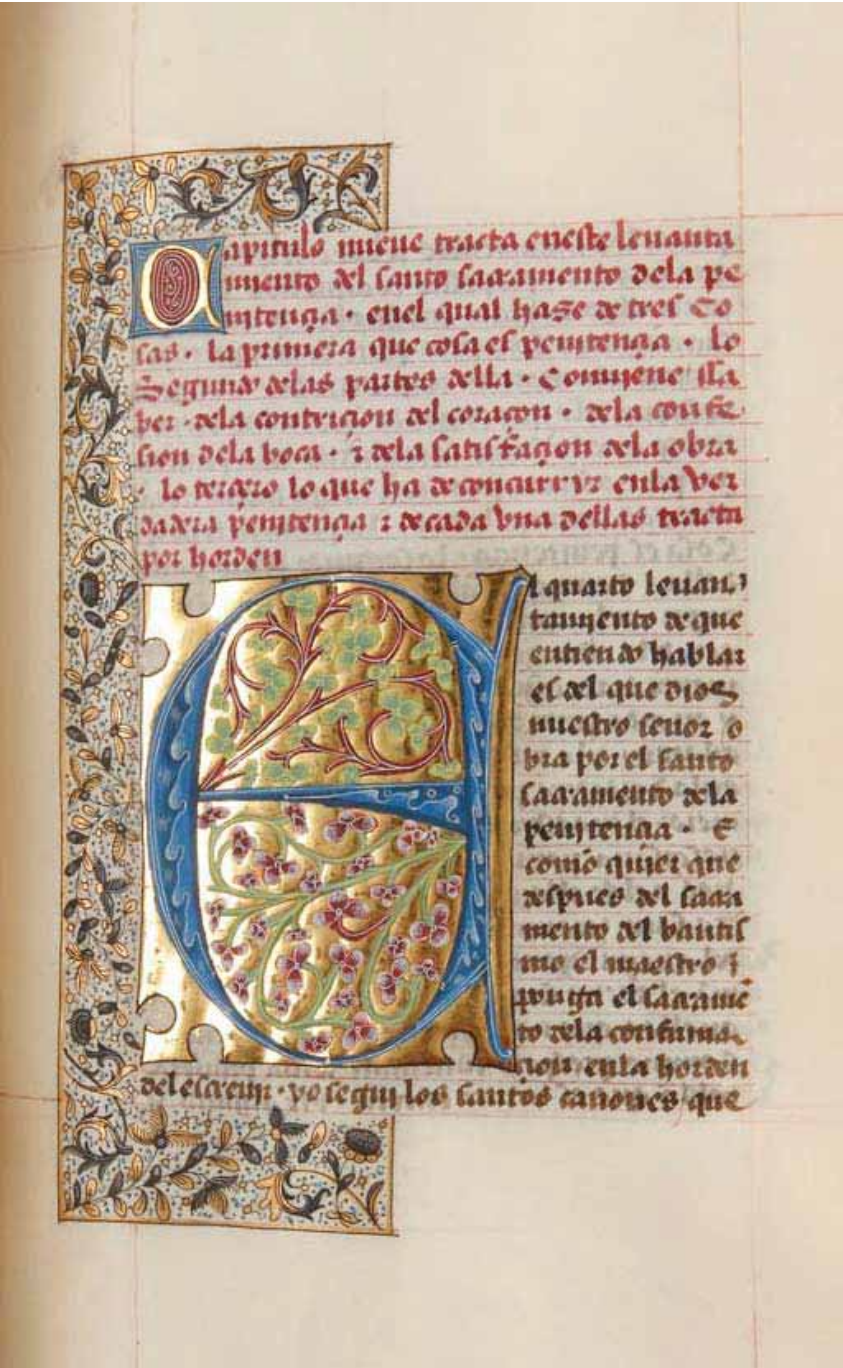 Capitulo nueue tracta eneste leuanta
miento del santo sacramento dela pe
nitençia · enel qual haze de tres Co
sas · la primera que cosa es penitençia · lo
Segundo delas partes della · Conuiene Asa
ber · dela contricion del coraçon · dela confe
sion dela boca · ⁊ dela satisfaçion dela obra
· lo terçero lo que ha de concurryr enla Ver
dadera penitençia ⁊ de cada Vna dellas tracta
por horden
El quarto leuan
tamiento de que
entiendo hablar
es del que dios
nuestro señor o
bra por el santo
sacramento dela
penitençia · E
como quier que
despues del sacra
mento del bautis
mo el maestro ī
ponga el sacramē
to dela confirma
çion enla horden
del escreuir · yo segui los santos canones que